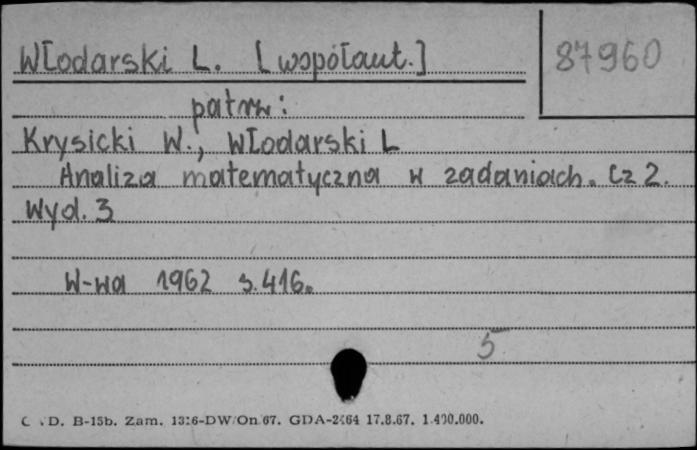 Włodarski L. [współaut.]
87960
patrz:
Krysicki W., Włodarski L
Analiza matematyczna w zadaniach. Cz 2.
Wyd. 3
W-wa 1962 s. 416.
5
D. B-15b. Zam. 1316-DW/On/67. GDA-2464 17.8.67. 1.400.000.